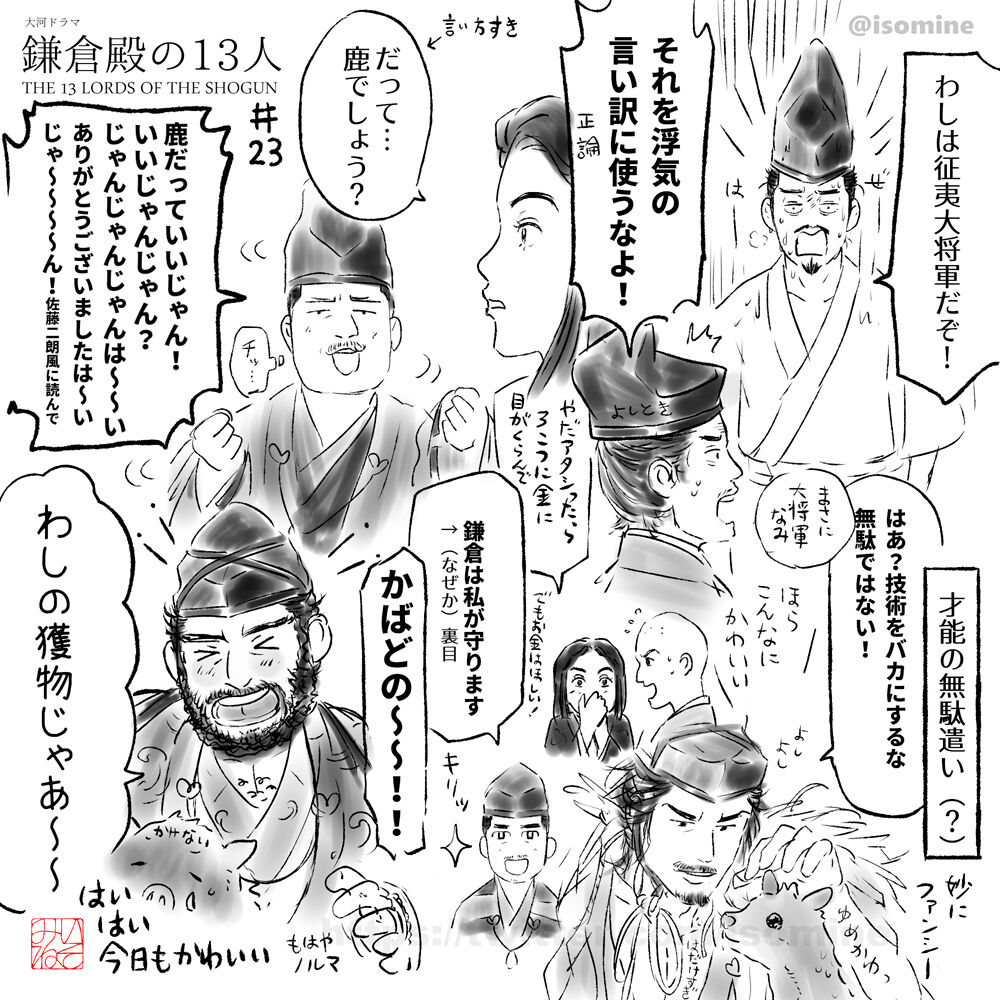 大河ドラマ
鎌倉殿の13人
THE 13 LORDS OF THE SHOGUN
#23
@isomine
わしは征夷大将軍だぞ！
ぜ
は
それを浮気の
言い訳に使うなよ！
正論
言い方すき
だって…
鹿でしょう？
鹿だっていいじゃん！
いいじゃんじゃん？
じゃんじゃんじゃんは〜〜い
ありがとうございましたは〜い
じゃ〜〜〜〜ん！佐藤二朗風に読んで
チッ…
よしとき
やだアタシったら
ろこつに金に
目がくらんで
でもお金はほしい！
まさに
大将軍
なみ
才能の無駄遣い（？）
はあ？技術をバカにするな
無駄ではない！
ほら
こんなに
かわいい
よし
よし
妙に
ファンシー
めめかゆっ
はだけすぎ
鎌倉は私が守ります
→（なぜか）裏目
キリッ
かばどの〜〜！！
わしの獲物じゃあ〜〜
かせない
はい
はい
今日もかわいい
もはや
ノルマ